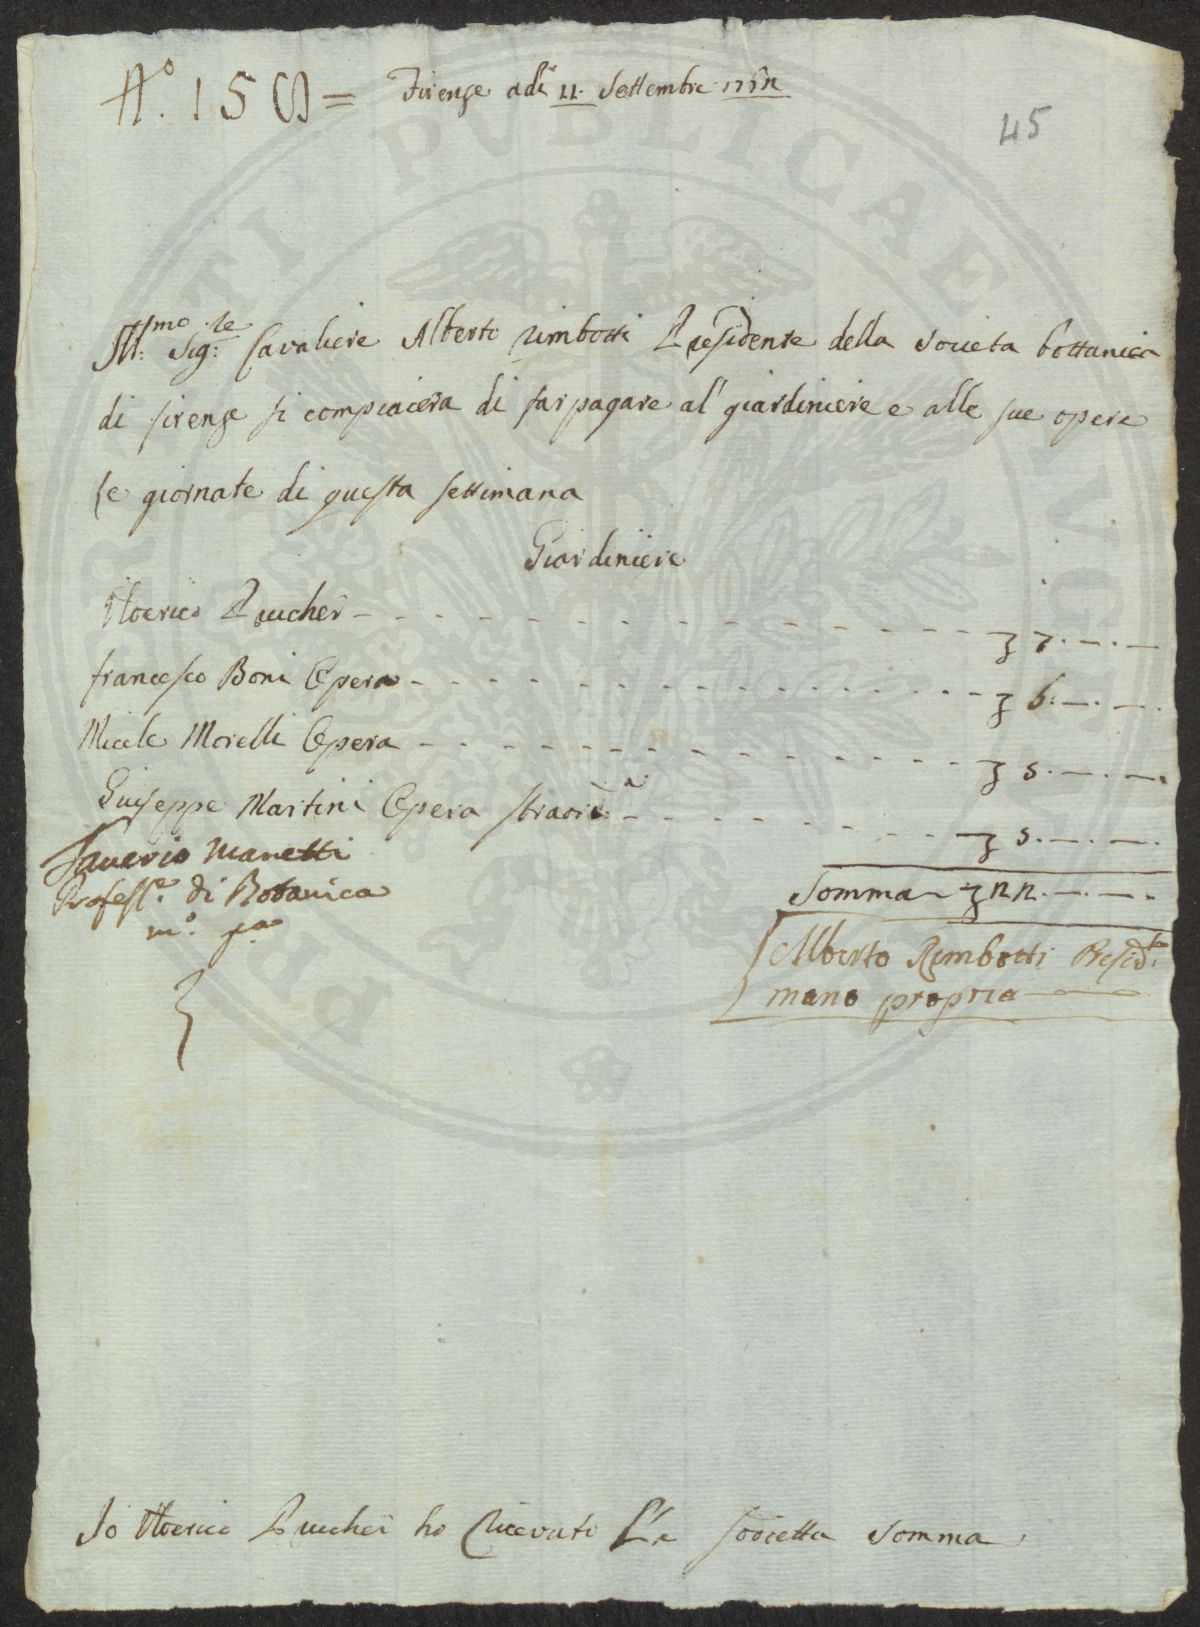 N.° 150 = Firenze adi 11. Settembre
45
Ill:mo Sig:re Cavaliere Alberto Rimbotti Presidente della Società bottanica
di firenze si compiacera di far pagare al giardiniere e alle sue opere
le giornate di questa settimana
Giardiniere
Ulderico Prucher - - - 7. — . —
francesco Boni Opera - - - 6. — . —
Micele Morelli Opera - - - 5. — . —
Giuseppe Martini Opera straord:a - - - 5. — . —
Somma
Saverio Manetti
Profess.e di Botanica
m.o p.a
Alberto Rimbotti Presid:te
mano propria
Io Ulderico Prucher ho Ricevuto La sodetta Somma